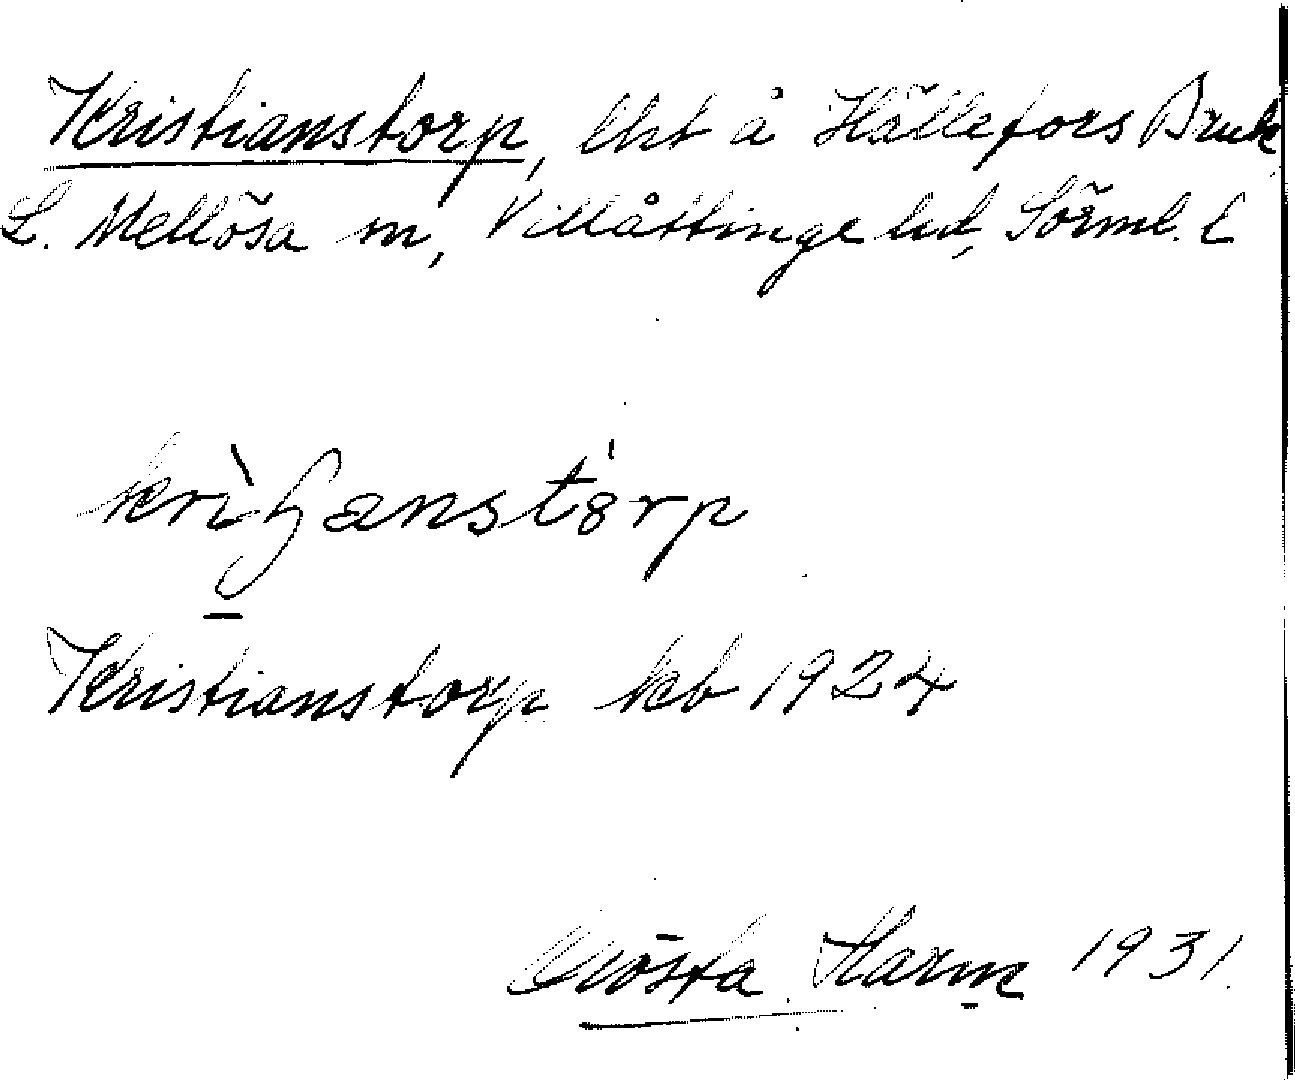 Kristianstorp, lht å Hällefors Bruk
L. Mellösa sn, Villåttinge hd, Sörml. L
Kristianstorp kb 1924
Gösta Harm 1931.